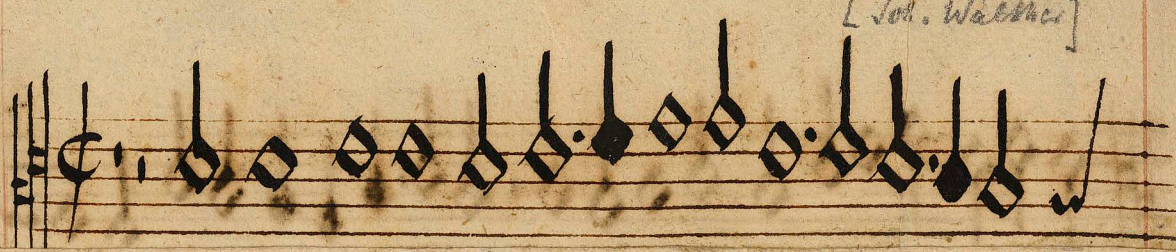 [Joh. Walther]